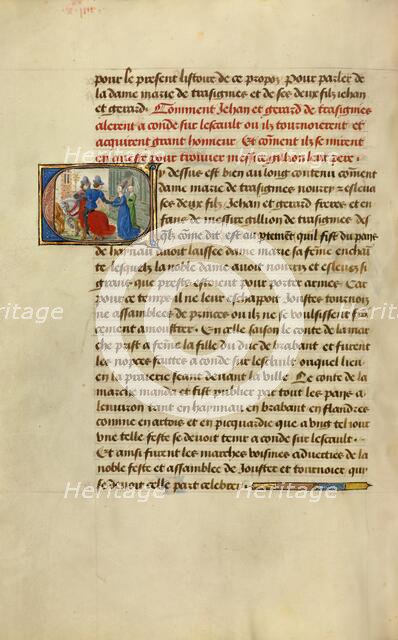 pour le present listoire de ce propoz Pour parler de
la dame marie de trasignies et de ses deux filz iehan
et gerard. Comment Jehan et gerard de trasignies
alerent a conde sur lescault ou ilz tournoierent et
acquirent grant honneur Et comment ilz se mirent
en queste pour trouver messire gillion leur pere.
Cy dessus est bien au long contenu comment
dame marie de trasignies nourry et esleva
ses deux filz Jehan et gerard freres et en
fans de messire gillion de trasignies des
quelz come dit est au partement quil fist du pays
de haynau avoit laissee dame marie sa feme enchain
te lesquelz la noble dame avoit nourris et eslevez si
grans que prestz estoient pour porter armes Car
pour ce temps il ne leur eschappoit Joustes tournois
ne assamblees de princes ou ilz ne se voulsissent fer
mement amonstrer En celle saison le conte de la mar
che prist a feme la fille du duc de brabant et furent
les nopces faittes a conde sur lescault ouquel lieu
en la praerie seant devant la ville Le conte de la
marche manda et fist publier par tout les pays a
lenviron tant en haynnau en brabant en flandres
comme en artois et en picquardie que a ung tel jour
une telle feste se devoit tenir a conde sur lescault.
Et ainsi furent les marches voisines adverties de la
noble feste et assamblee de Jouster et tournoier qui
se devoit celle part celebrer.
Heritage Images
Heritage Images
Heritage Images
Heritage Images
Heritage Images